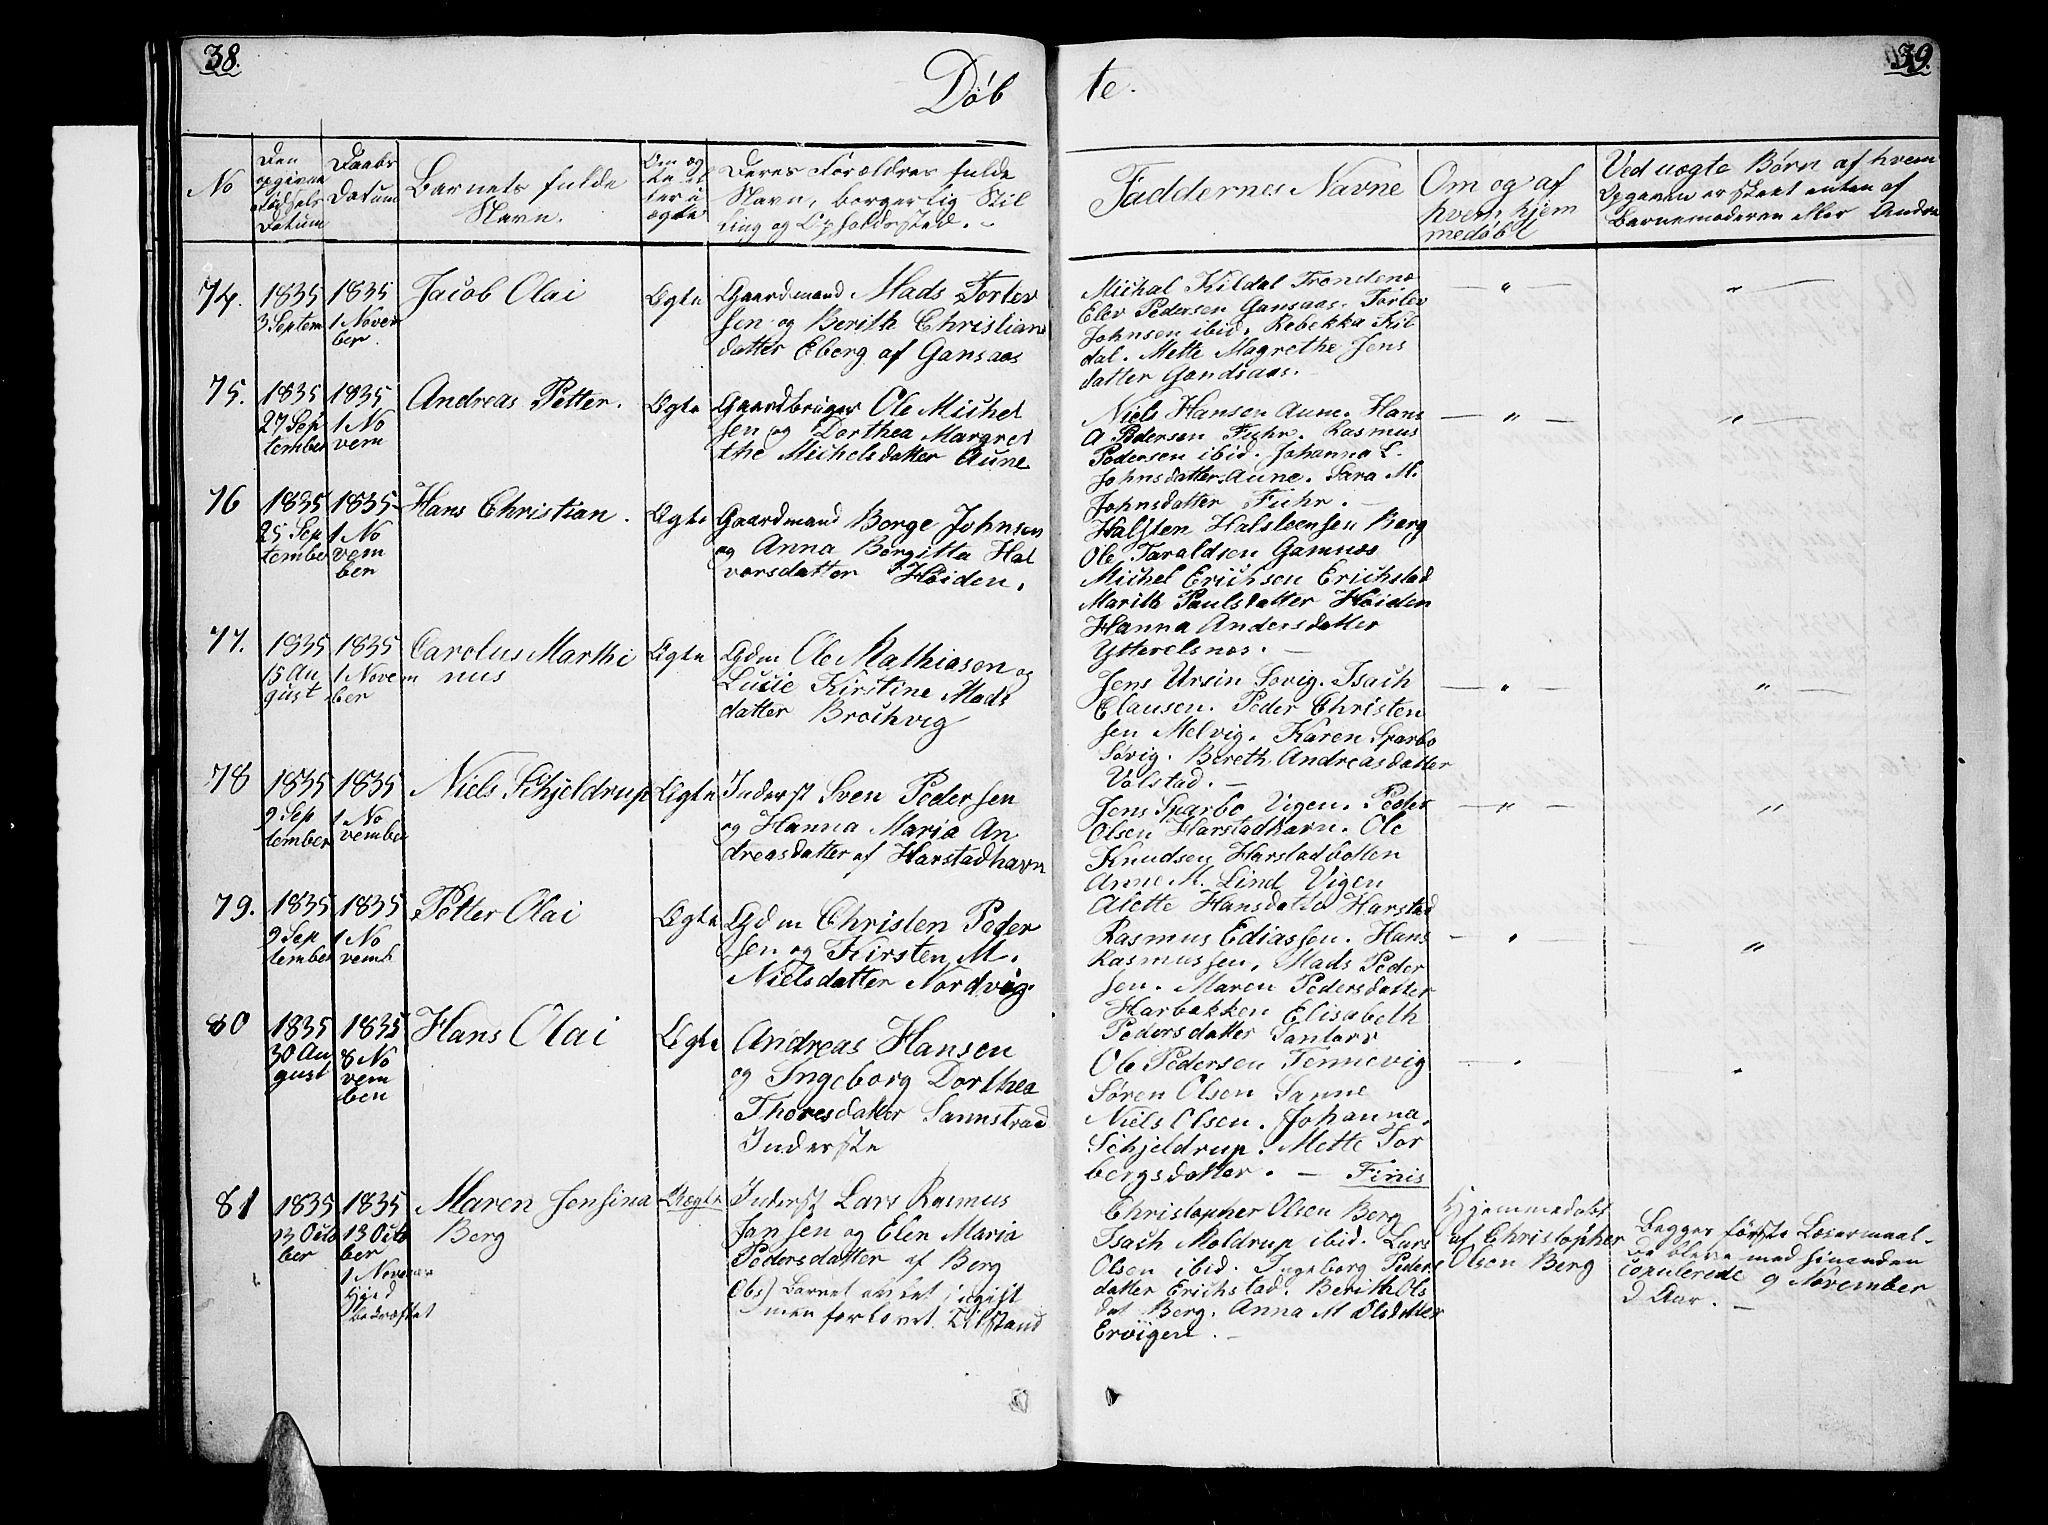 38.
39.
Døbte.
No
Den opgivne Fødsels Datum
Daabs Datum
Barnets fulde Navn.
Om og ægte
Deres Forældres fulde Navn, borgerlig Stilling og Opholdssted.
Faddernes Navne
Om og af hvem hjemmedøbt
Ved uægte Børn af hvem
Opgaven er skeet enten af
Barnemoderen eller Andre
74.
1835
3 Septem
1835
1 November.
Jacob Olai
Ægte
Gaardmand Mads Torler
sen og Berith Christians
datter Eberg af Gansaas
Michal Kildal Trondenæ
Elev Pedersen Gansaas. Torlev
Johnsen ibid. Rebekka Kil
dal. Mette Magrethe Jens
datter Gandsaas.
75.
1835
27 Sep
tember
1835
1 No
vem
Andreas Petter.
Ægte
Gaardbruger Ole Michel
sen og Dorthea Margret
the Michelsdatter Aune
Niels Hansen Aune. Hans
A Pedersen Fuhr. Rasmus
Pedersen ibid. Johanna L.
Johnsdatter Aune. Sara M.
Johnsdatter Fuhr.
76
1835
25 Sep
tember
1835
1 No
vem
ber
Hans Christian.
Ægte
Gaardmand Borge Johnsen
og Anna Bergitta Hal
vorsdatter Høiden.
Halsten Halsteensen Berg
Ole Taraldsen Gamnæs
Michel Erichsen Erichstad
Marith Paulsdatter Høiden
Hanna Andersdatter
Ytterelsnæs.
77.
1835
15 Au
gust
1835
1 Novem
ber
Carolus Marthi
nus
Ægte
Gdm Ole Mathiasen og
Lucie Kirstine Mads
datter Brochvig
Jens Ursin Sovig. Isach
Clausen. Peder Christen
sen Melvig. Karen Sparbo
Søvig. Bereth Andreasdatter
Volstad.
78
1835
9 Sep
tember
1835
1 No
vember
Niels Schjeldrup
Ægte
Inderst Sven Pedersen
og Hanna Maria An
dreasdatter af Harstadhavn
Jens Sparbo Vigen. Peder
Olsen Harstadhavn. Ole
Knudsen Harstadbotten
Anne M. Lind Vigen
Alette Hansdatter Harstad
79.
1835
9 Sep
tember
1835
1 No
vemb
Petter Olai
Ægte
Gdm Christen Peder
sen og Kirsten M.
Nielsdatter Nordvig.
Rasmus Ediassen. Hans
Rasmussen. Mads Peder
sen. Maren Pedersdatter
Harbakken Elisabeth
Pedersdatter
80
1835
30 Au
gust
1835
8 No
vem
ber
Hans Olai
Ægte
Andreas Hansen
og Ingeborg Dorthea
Thoresdatter Sannstrand
Inderste
Ole Pedersen Tennevig
Søren Olsen Sanne
Niels Olsen. Johanna
Schjeldrup. Mette Tor
bergsdatter. — Finis
81
1835
13 Octo
ber
1835
13 Octo
ber
1 November
Maren Jensina
Berg
Uægte
Inderst Lars Rasmus
Jansen og Elen Maria
Pedersdatter af Berg
Obs) Barnet avlet i ugift
men forlovet Tilstand
Christopher Olsen Berg
Isach Moldrup ibid. Lars
Olsen ibid. Ingeborg Peders
datter Erichstad. Berith Ols
dat Berg. Anna M Olsdatter
Ervigen.
Hjemmedøbt
af Christopher
Olsen Berg
Begges første Leiermaal.
De bleve med hinanden
Copulerede 9 November
d Aar.